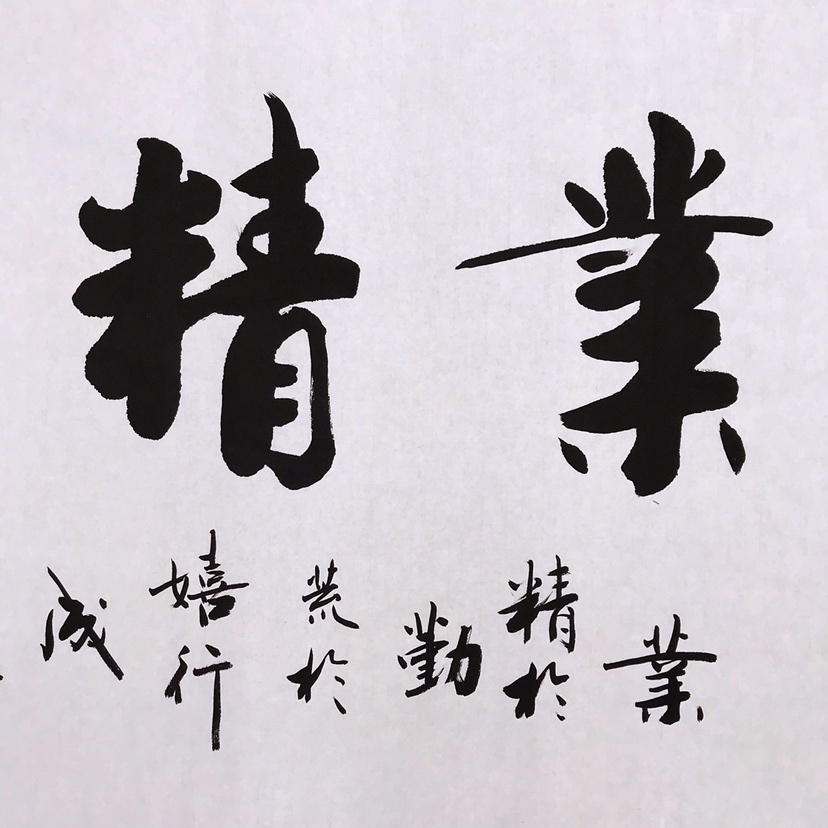 業精
業
精於
勤
荒於
嬉行
成